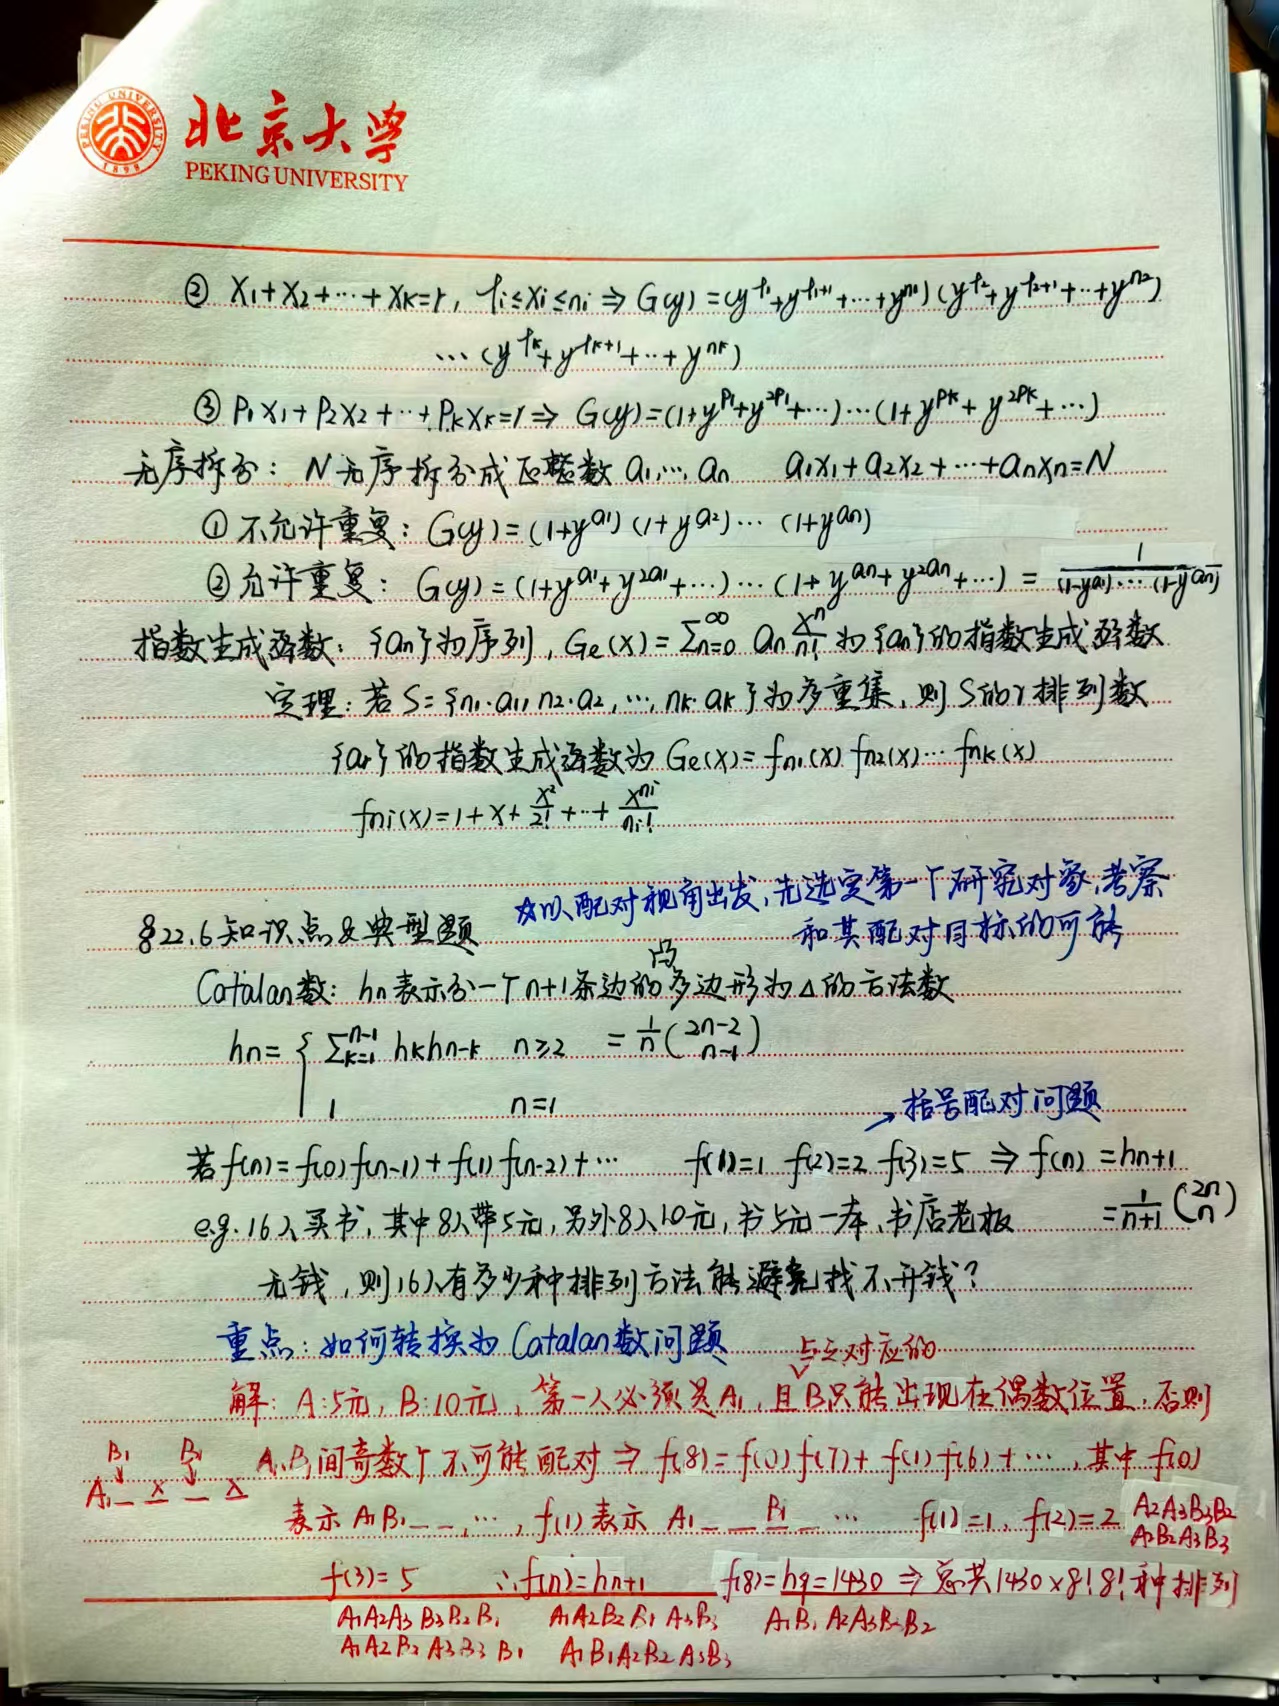 北京大学
PEKING UNIVERSITY
PEKING UNIVERSITY
1898
② X₁+X₂+⋯+Xₖ=r, tᵢ≤xᵢ≤nᵢ ⇒ G(y)=(y^t₁+y^(t₁+1)+⋯+y^n₁)(y^t₂+y^(t₂+1)+⋯+y^n₂)
⋯(y^tₖ+y^(tₖ+1)+⋯+y^nₖ)
③ P₁X₁+P₂X₂+⋯+PₖXₖ=r ⇒ G(y)=(1+y^P₁+y^2P₁+⋯)⋯(1+y^Pₖ+y^2Pₖ+⋯)
无序拆分: N无序拆分成正整数 a₁,⋯,aₙ a₁x₁+a₂x₂+⋯+aₙxₙ=N
①不允许重复: G(y)=(1+y^a₁)(1+y^a₂)⋯(1+y^aₙ)
②允许重复: G(y)=(1+y^a₁+y^2a₁+⋯)⋯(1+y^aₙ+y^2aₙ+⋯)=1/((1-y^a₁)⋯(1-y^aₙ))
指数生成函数: {aₙ}为序列, Ge(x)=∑_{n=0}^{∞} aₙ xⁿ/n! 为{aₙ}的指数生成函数
定理: 若S={n₁·a₁, n₂·a₂,⋯, nₖ·aₖ}为多重集, 则S的r排列数
{aᵣ}的指数生成函数为 Ge(x)=fn₁(x) fn₂(x)⋯fnₖ(x)
fnᵢ(x)=1+x+x²/2!+⋯+x^nᵢ/nᵢ!
☆以配对视角出发,先选定第一个研究对象,考察
和其配对目标的可能
§22.6知识点&典型题
Catalan数: hn表示分一个n+1条边的凸多边形为△的方法数
hn={ ∑_{k=1}^{n-1} hₖhₙ₋ₖ n≥2 =1/n (2n-2 n-1)
1 n=1
→括号配对问题
若f(n)=f(0)f(n-1)+f(1)f(n-2)+⋯ f(1)=1 f(2)=2 f(3)=5 ⇒ f(n)=hn+1
=1/(n+1) (2n n)
e.g. 16人买书, 其中8人带5元, 另外8人10元, 书5元一本, 书店老板
无钱, 则16人有多少种排列方法能避免找不开钱?
重点: 如何转换为Catalan数问题
与之对应的
解: A:5元, B:10元, 第一人必须是A₁, 且B只能出现在偶数位置, 否则
B₁ B₁
A₁ _ x _ x
A₁、B₁间奇数个不可能配对 ⇒ f(8)=f(0)f(7)+f(1)f(6)+⋯, 其中f(0)
表示 A₁B₁_ _,⋯, f(1)表示 A₁ _ _ B₁ _ ⋯ f(1)=1, f(2)=2 A₂A₃B₃B₂
A₂B₂A₃B₃
f(3)=5 ∴f(n)=hn+1 f(8)=h9=1430 ⇒ 总共1430×8!8!种排列
A₁A₂A₃B₃B₂B₁ A₁A₂B₂B₁A₃B₃ A₁B₁A₂A₃B₃B₂
A₁A₂B₂A₃B₃B₁ A₁B₁A₂B₂A₃B₃